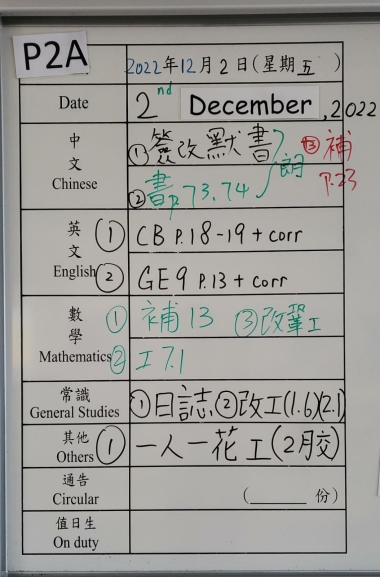 P2A
2022年12月2日(星期五)
Date 2nd December, 2022
中文 Chinese
①簽改默書 朗 ③補 P.23
②書p.73.74
英文 English
① CB P.18-19 + corr
② GE9 P.13 + corr
數學 Mathematics
① 補13 ③改鞏工
② 工7.1
常識 General Studies
①日誌②改工(1.6)(2.1)
其他 Others
① 一人一花工(2月交)
通告 Circular
(______ 份)
值日生 On duty